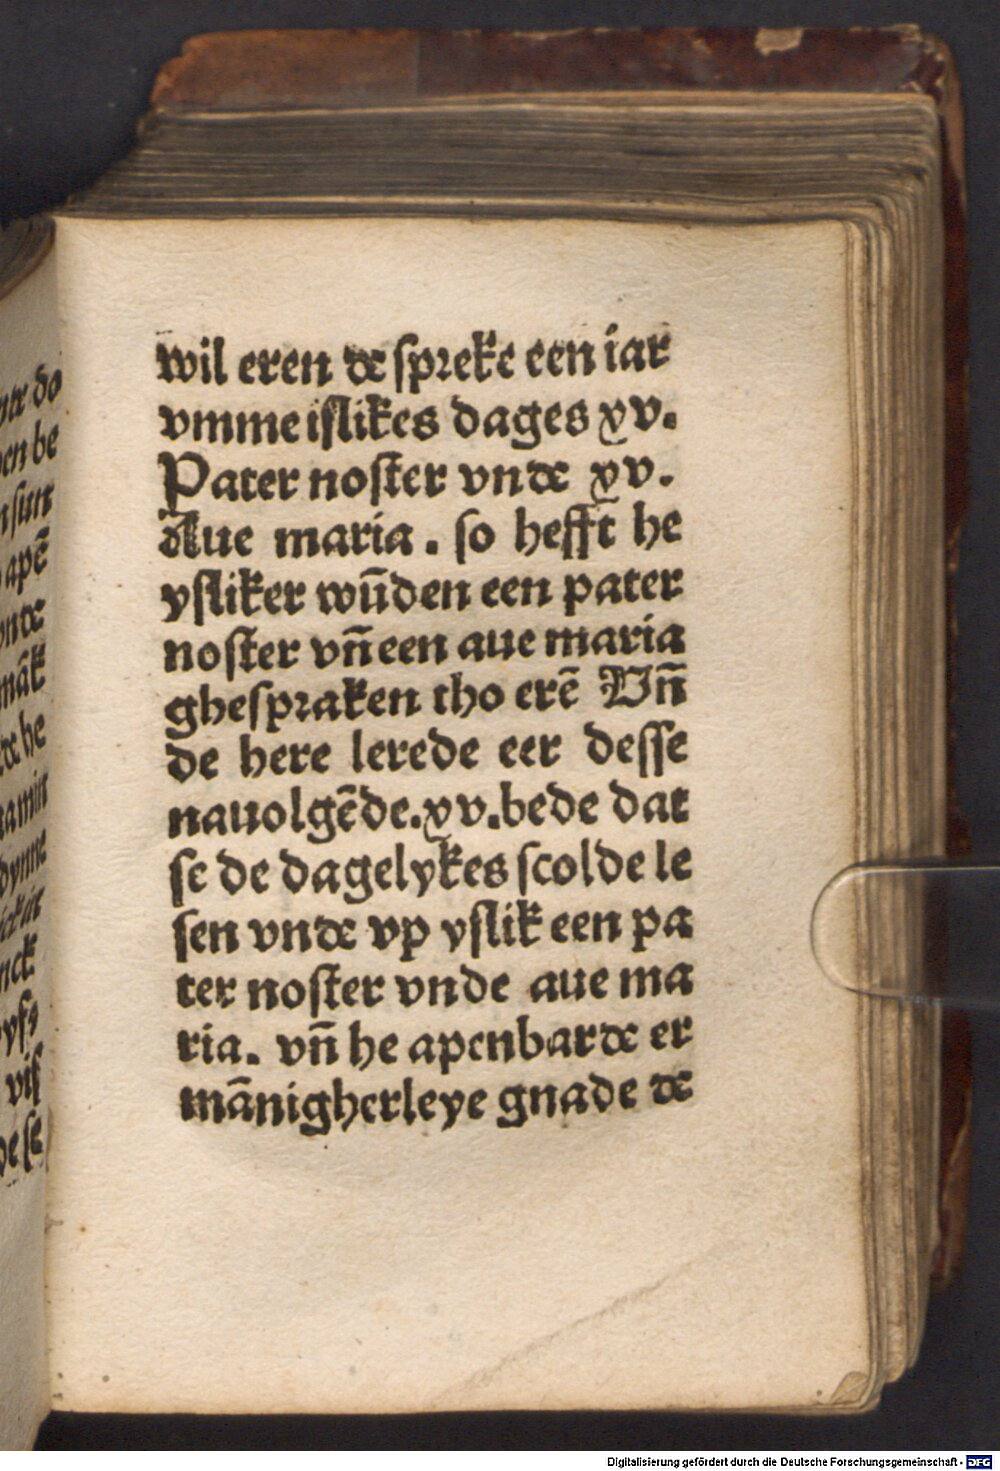 wil eren de spreke een iar
vmme islikes dages xv.
Pater noster vnde xv.
Aue maria. so hefft he
ysliker wūden een pater
noster vn̄ een aue maria
ghespraken tho erē Vn̄
de here lerede eer desse
nauolgēde.xv.bede dat
se de dagelykes scolde le
sen vnde vp yslik een pa
ter noster vnde aue ma
ria. vn̄ he apenbarde er
mānigherleye gnade de
Digitalisierung gefördert durch die Deutsche Forschungsgemeinschaft - DFG